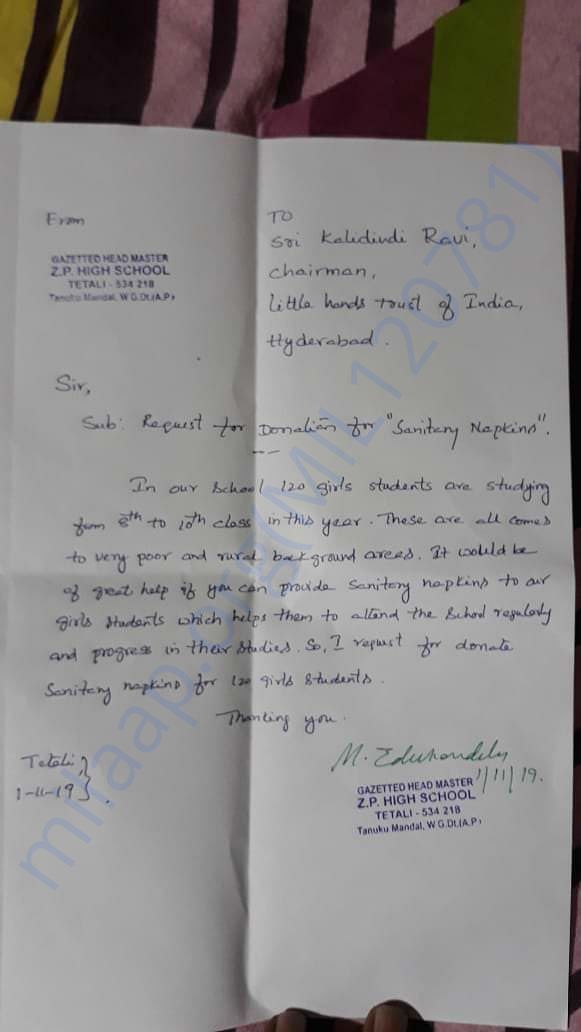 From
GAZETTED HEAD MASTER
Z.P. HIGH SCHOOL
TETALI - 534 218
Tanuku Mandal, W G.Dt.(A.P)
TO
Sri Kalidindi Ravi,
Chairman,
Little hands trust of India,
Hyderabad.
Sir,
Sub: Request for Donation for "Sanitary Napkins".
In our School 120 girls students are studying
from 8th to 10th class in this year. These are all comes
to very poor and rural background areas. It would be
of great help if you can provide Sanitary napkins to our
girls students which helps them to attend the School regularly
and progress in their studies. So, I request for donate
Sanitary napkins for 120 girls students.
Thanking you.
Tetali
1-11-19
M.
1/11/19.
GAZETTED HEAD MASTER
Z.P. HIGH SCHOOL
TETALI - 534 218
Tanuku Mandal, W G.Dt.(A.P)
milaap.org(MIL120781)